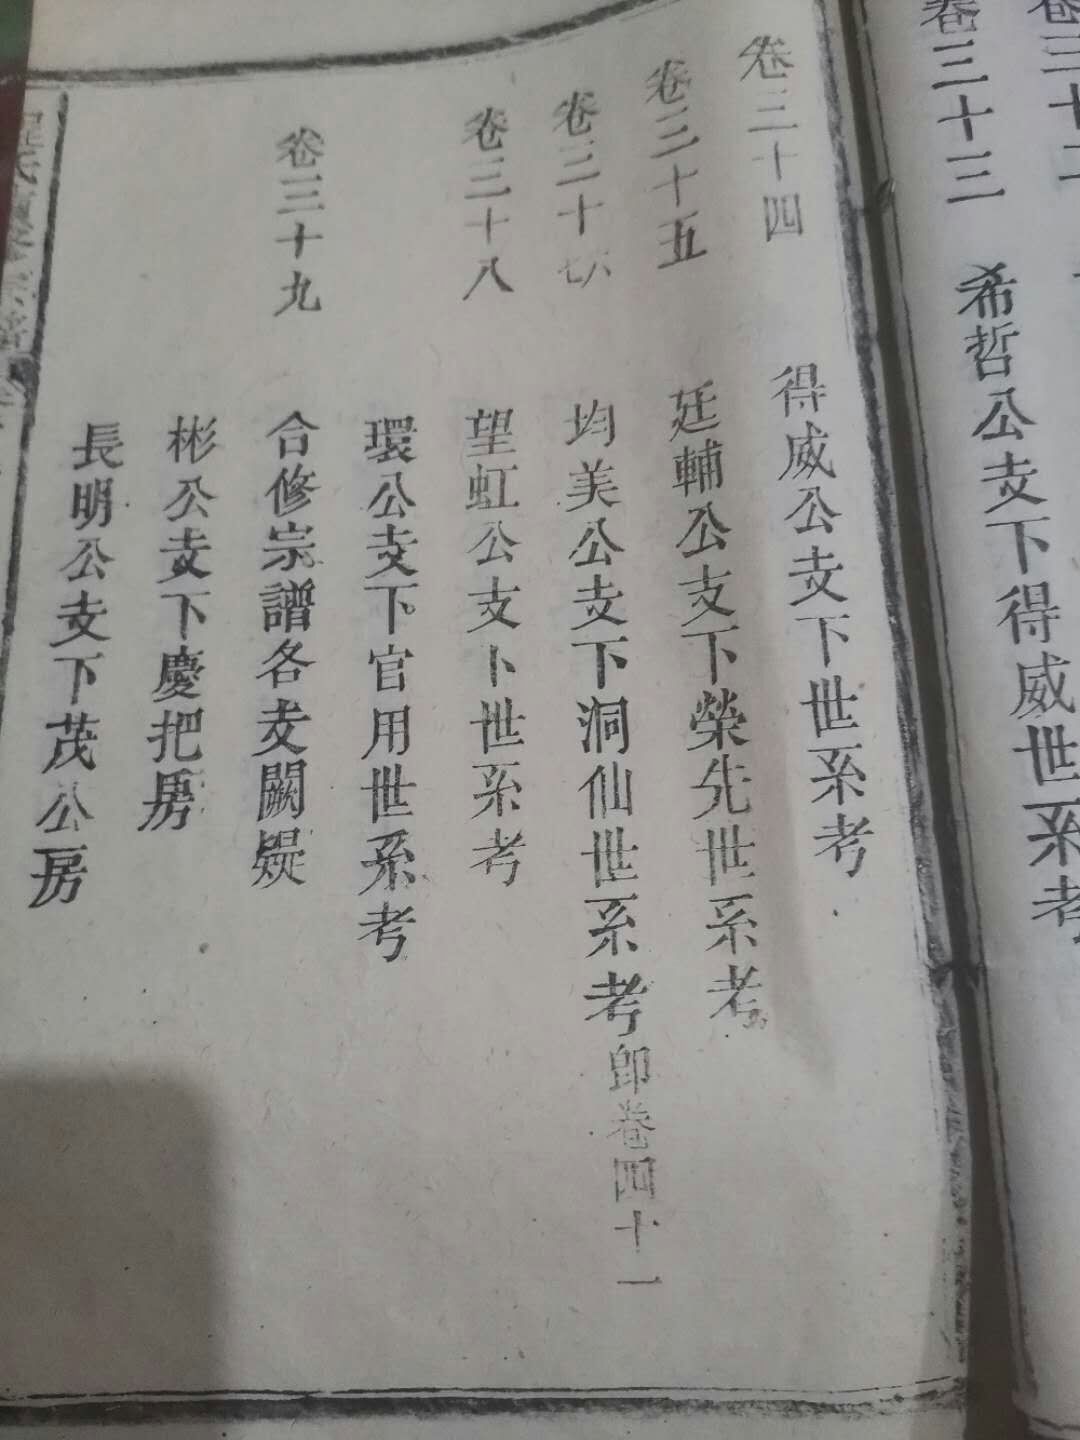 卷三十三　希哲公支下得威世系考
卷三十四　得威公支下世系考
卷三十五　廷輔公支下榮先世系考
卷三十　均美公支下洞仙世系考　卽卷四十一
卷三十八　望虹公支卜世系考
環公支下官用世系考
卷三十九　合修宗譜各支闕疑
彬公支下慶把房
長明公支下茂公房